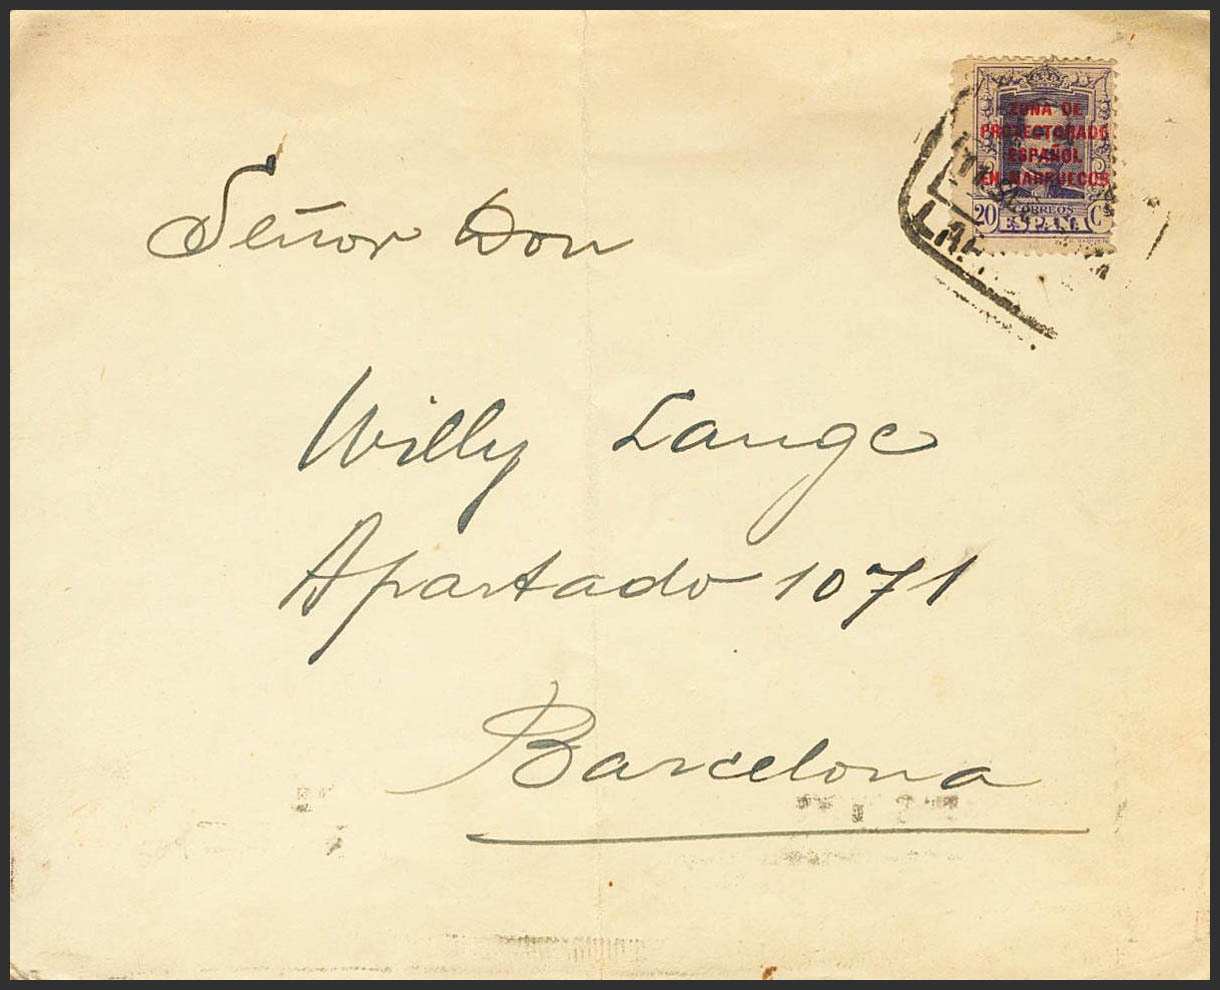 ZONA DE
PROTECTORADO
ESPAÑOL
EN MARRUECOS
20 CORREOS Cs
ESPAÑA
Señor Don
Willy Lange
Apartado 1071
Barcelona